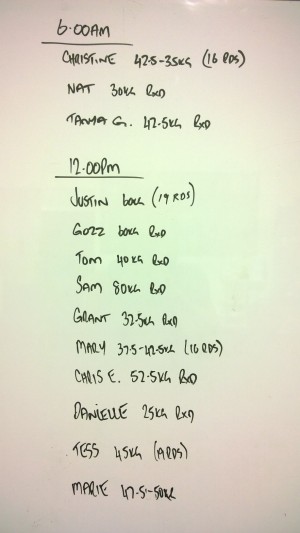 6:00AM
CHRISTINE 42.5-35KG (16 RDS)
NAT 30KG RXD
TANYA G. 42.5KG RXD
12.00PM
JUSTIN 60KG (19 RDS)
GOZZ 60KG RXD
TOM 40KG RXD
SAM 80KG RXD
GRANT 32.5KG RXD
MARY 37.5-42.5KG (16 RDS)
CHRIS E. 52.5KG RXD
DANIELLE 25KG RXD
TESS 45KG
MARIE 47.5-50KG